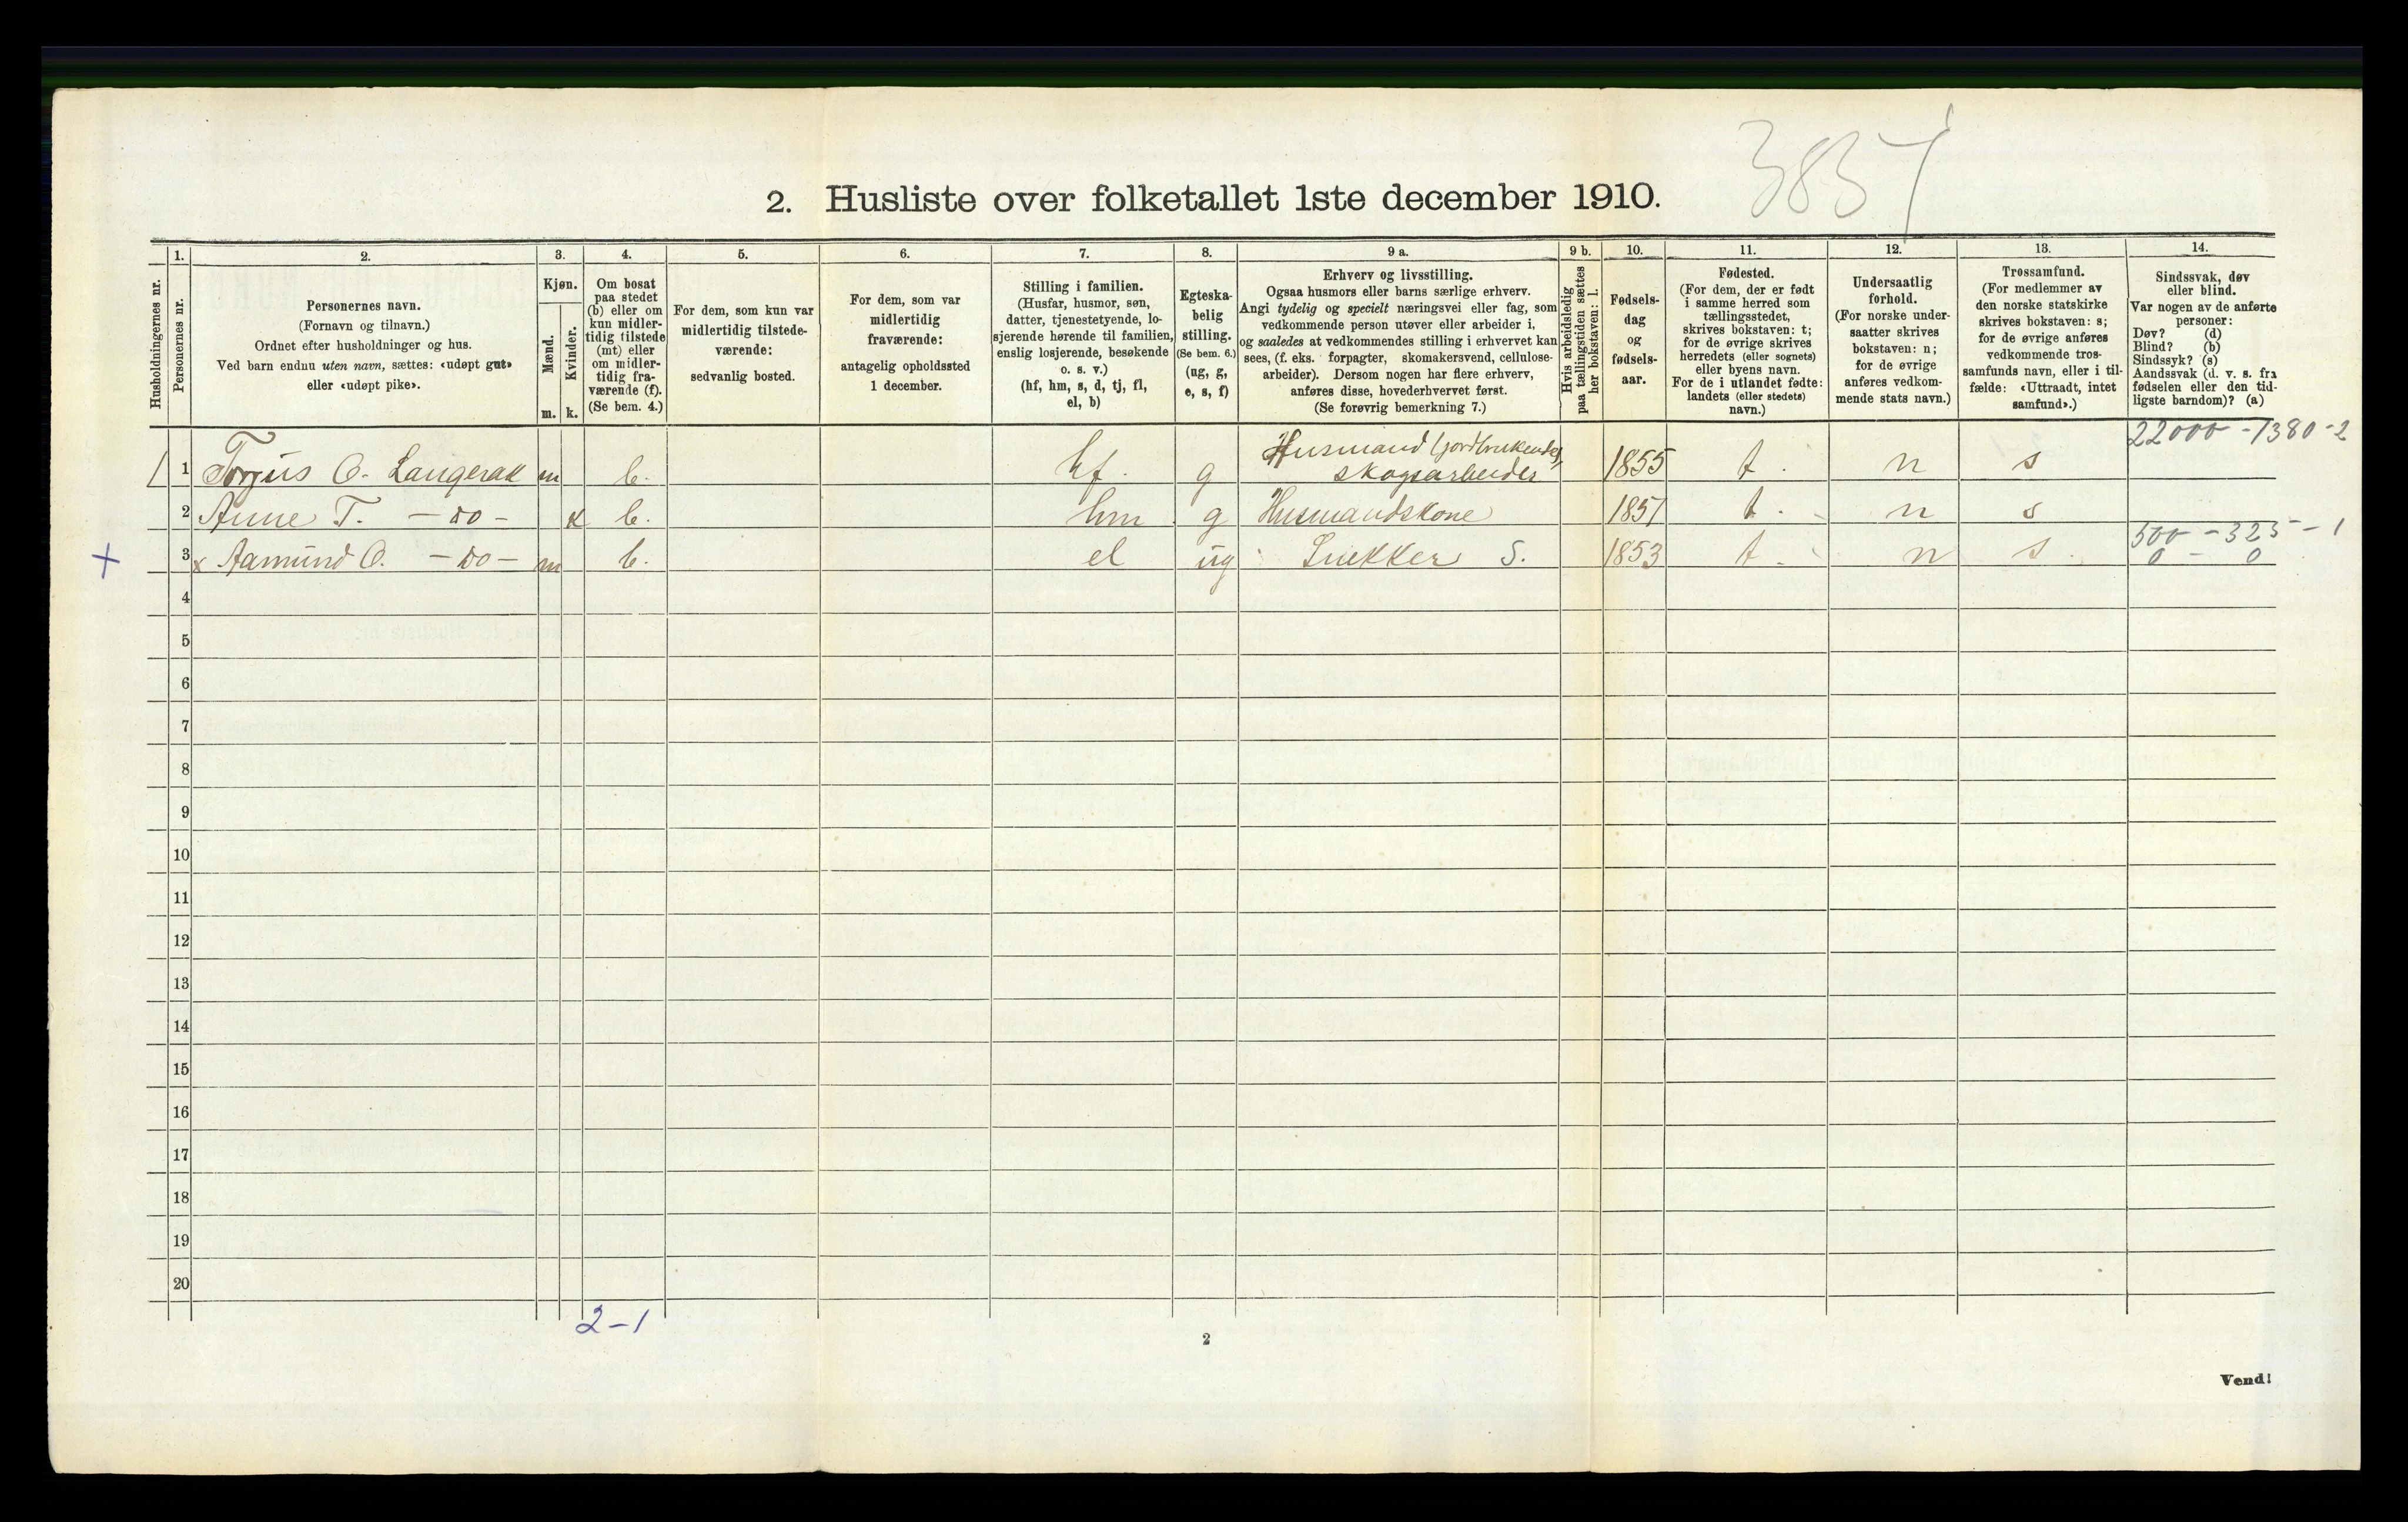 2. Husliste over folketallet 1ste december 1910.
1. 2. 3. 4. 5. 6. 7. 8. 9 a. 9 b. 10. 11. 12. 13. 14.
Husholdningernes nr.
Personernes nr.
Personernes navn.
(Fornavn og tilnavn.)
Ordnet efter husholdninger og hus.
Ved barn endnu uten navn, sættes: «udøpt gut»
eller «udøpt pike».
Kjøn.
Mænd.
Kvinder.
m. k.
Om bosat
paa stedet
(b) eller om
kun midler-
tidig tilstede
(mt) eller
om midler-
tidig fra-
værende (f).
(Se bem. 4.)
For dem, som kun var
midlertidig tilstede-
værende:
sedvanlig bosted.
For dem, som var
midlertidig
fraværende:
antagelig opholdssted
1 december.
Stilling i familien.
(Husfar, husmor, søn,
datter, tjenestetyende, lo-
sjerende hørende til familien,
enslig losjerende, besøkende
o. s. v.)
(hf, hm, s, d, tj, fl,
el, b)
Egteska-
belig
stilling.
(Se bem. 6.)
(ug, g,
e, s, f)
Erhverv og livsstilling.
Ogsaa husmors eller barns særlige erhverv.
Angi tydelig og specielt næringsvei eller fag, som
vedkommende person utøver eller arbeider i,
og saaledes at vedkommendes stilling i erhvervet kan
sees, (f. eks. forpagter, skomakersvend, cellulose-
arbeider). Dersom nogen har flere erhverv,
anføres disse, hovederhvervet først.
(Se forøvrig bemerkning 7.)
Hvis arbeidsledig
paa tællingstiden sættes
her bokstaven: l.
Fødsels-
dag
og
fødsels-
aar.
Fødested.
(For dem, der er født
i samme herred som
tællingsstedet,
skrives bokstaven: t;
for de øvrige skrives
herredets (eller sognets)
eller byens navn.
For de i utlandet fødte:
landets (eller stedets)
navn.)
Undersaatlig
forhold.
(For norske under-
saatter skrives
bokstaven: n;
for de øvrige
anføres vedkom-
mende stats navn.)
Trossamfund.
(For medlemmer av
den norske statskirke
skrives bokstaven: s;
for de øvrige anføres
vedkommende tros-
samfunds navn, eller i til-
fælde: «Uttraadt, intet
samfund».)
Sindssvak, døv
eller blind.
Var nogen av de anførte
personer:
Døv? (d)
Blind? (b)
Sindssyk? (s)
Aandssvak (d. v. s. fra
fødselen eller den tid-
ligste barndom)? (a)
22000 - 1380 - 2
Husmand (jordbrukende),
1 1 Torjus O. Langerak m b. hf. g skogsarbeider 1855 t. n s
2 Anne T. - do - k b. hm g Husmandskone 1857 t. n s
500 - 325 - 1
+ 3 x Aamund O. - do - m b. el ug Snekker S. 1853 t. n s. 0 - 0
4
5
6
7
8
9
10
11
12
13
14
15
16
17
18
19
20
2-1
2
Vend!